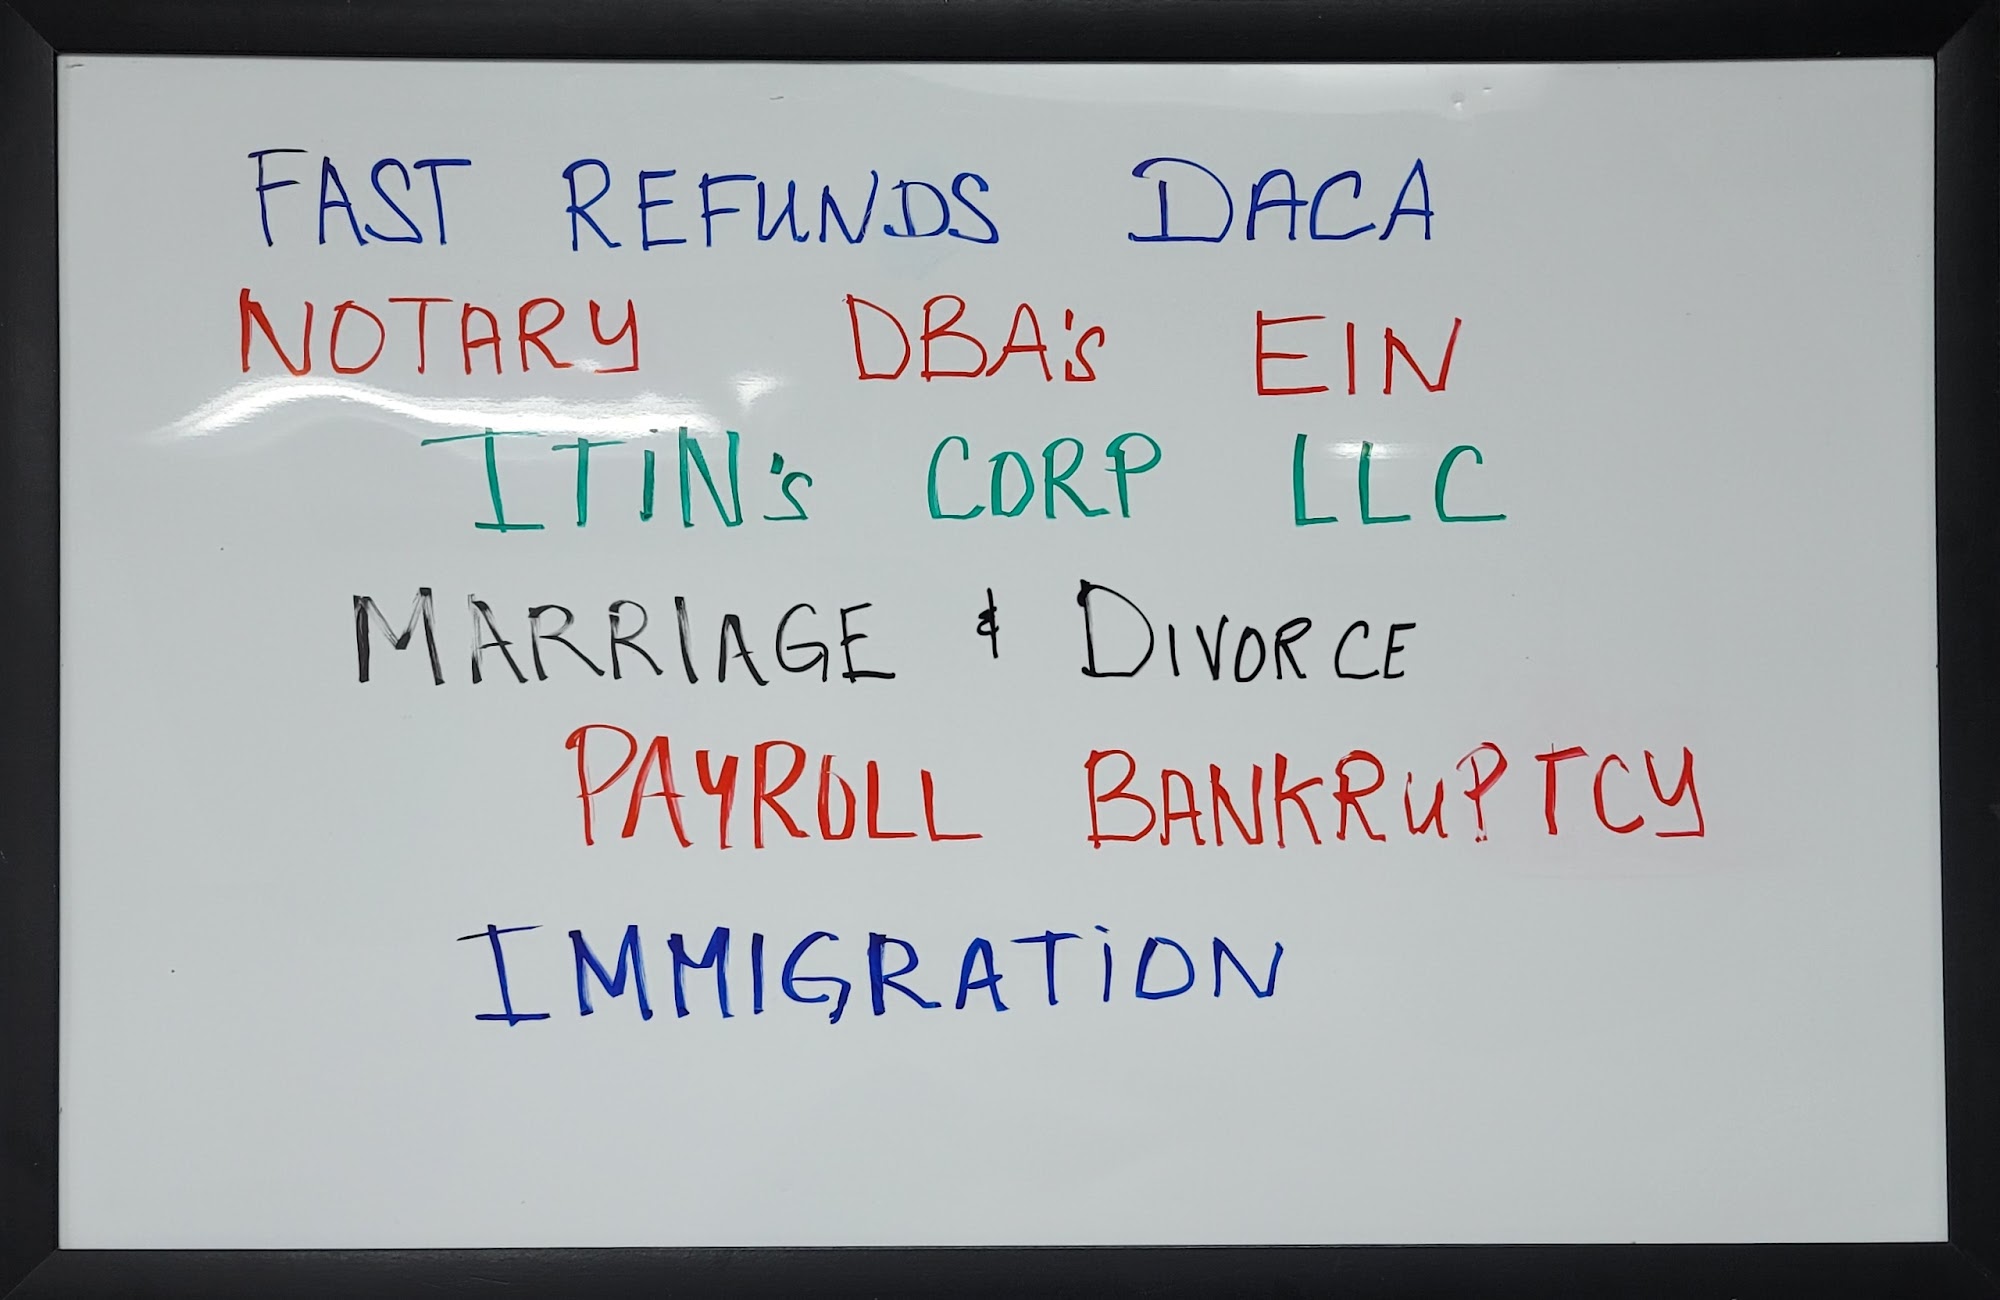 FAST REFUNDS DACA
NOTARY DBA's EIN
ITiN's CORP LLC
MARRIAGE & DIVORCE
PAYROLL BANKRuPTCY
IMMIGRATiON